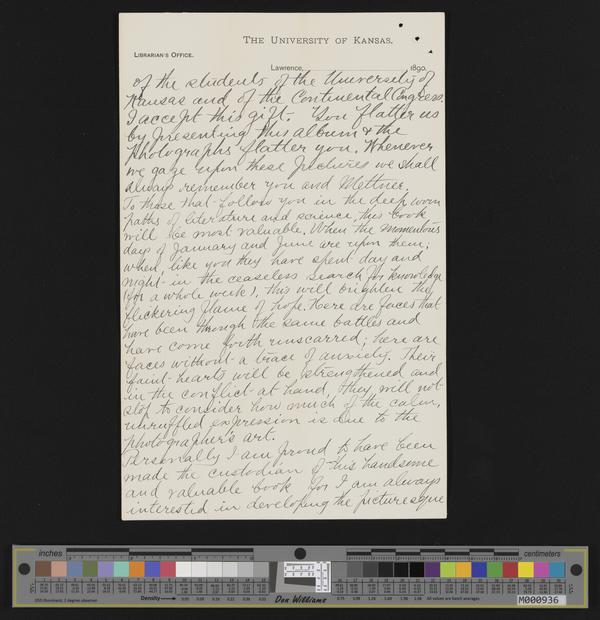 THE UNIVERSITY OF KANSAS.
LIBRARIAN'S OFFICE.
Lawrence, 1890.
of the students of the University of
Kansas and of the Continental Congress.
I accept this gift. You flatter us
by presenting this album & the
photographs flatter you. Whenever
we gaze upon these pictures we shall
always remember you and Mettner.
To those that follow you in the deep worn
paths of literature and science, this book
will be most valuable. When the momentous
days of January and June are upon them;
when, like you they have spent day and
night in the ceaseless search for knowledge
(for a whole week), this will brighten the
flickering flame of hope. Here are faces that
have been through the same battles and
have come forth unscarred; here are
faces without a trace of anxiety. Their
faint hearts will be strengthened and
in the conflict at hand, they will not
stop to consider how much of the calm,
unruffled expression is due to the
photographer's art.
Personally I am proud to have been
made the custodian of this handsome
and valuable book for I am always
interested in developing the picturesque
inches
centimeters
Density
Don Williams
M000936